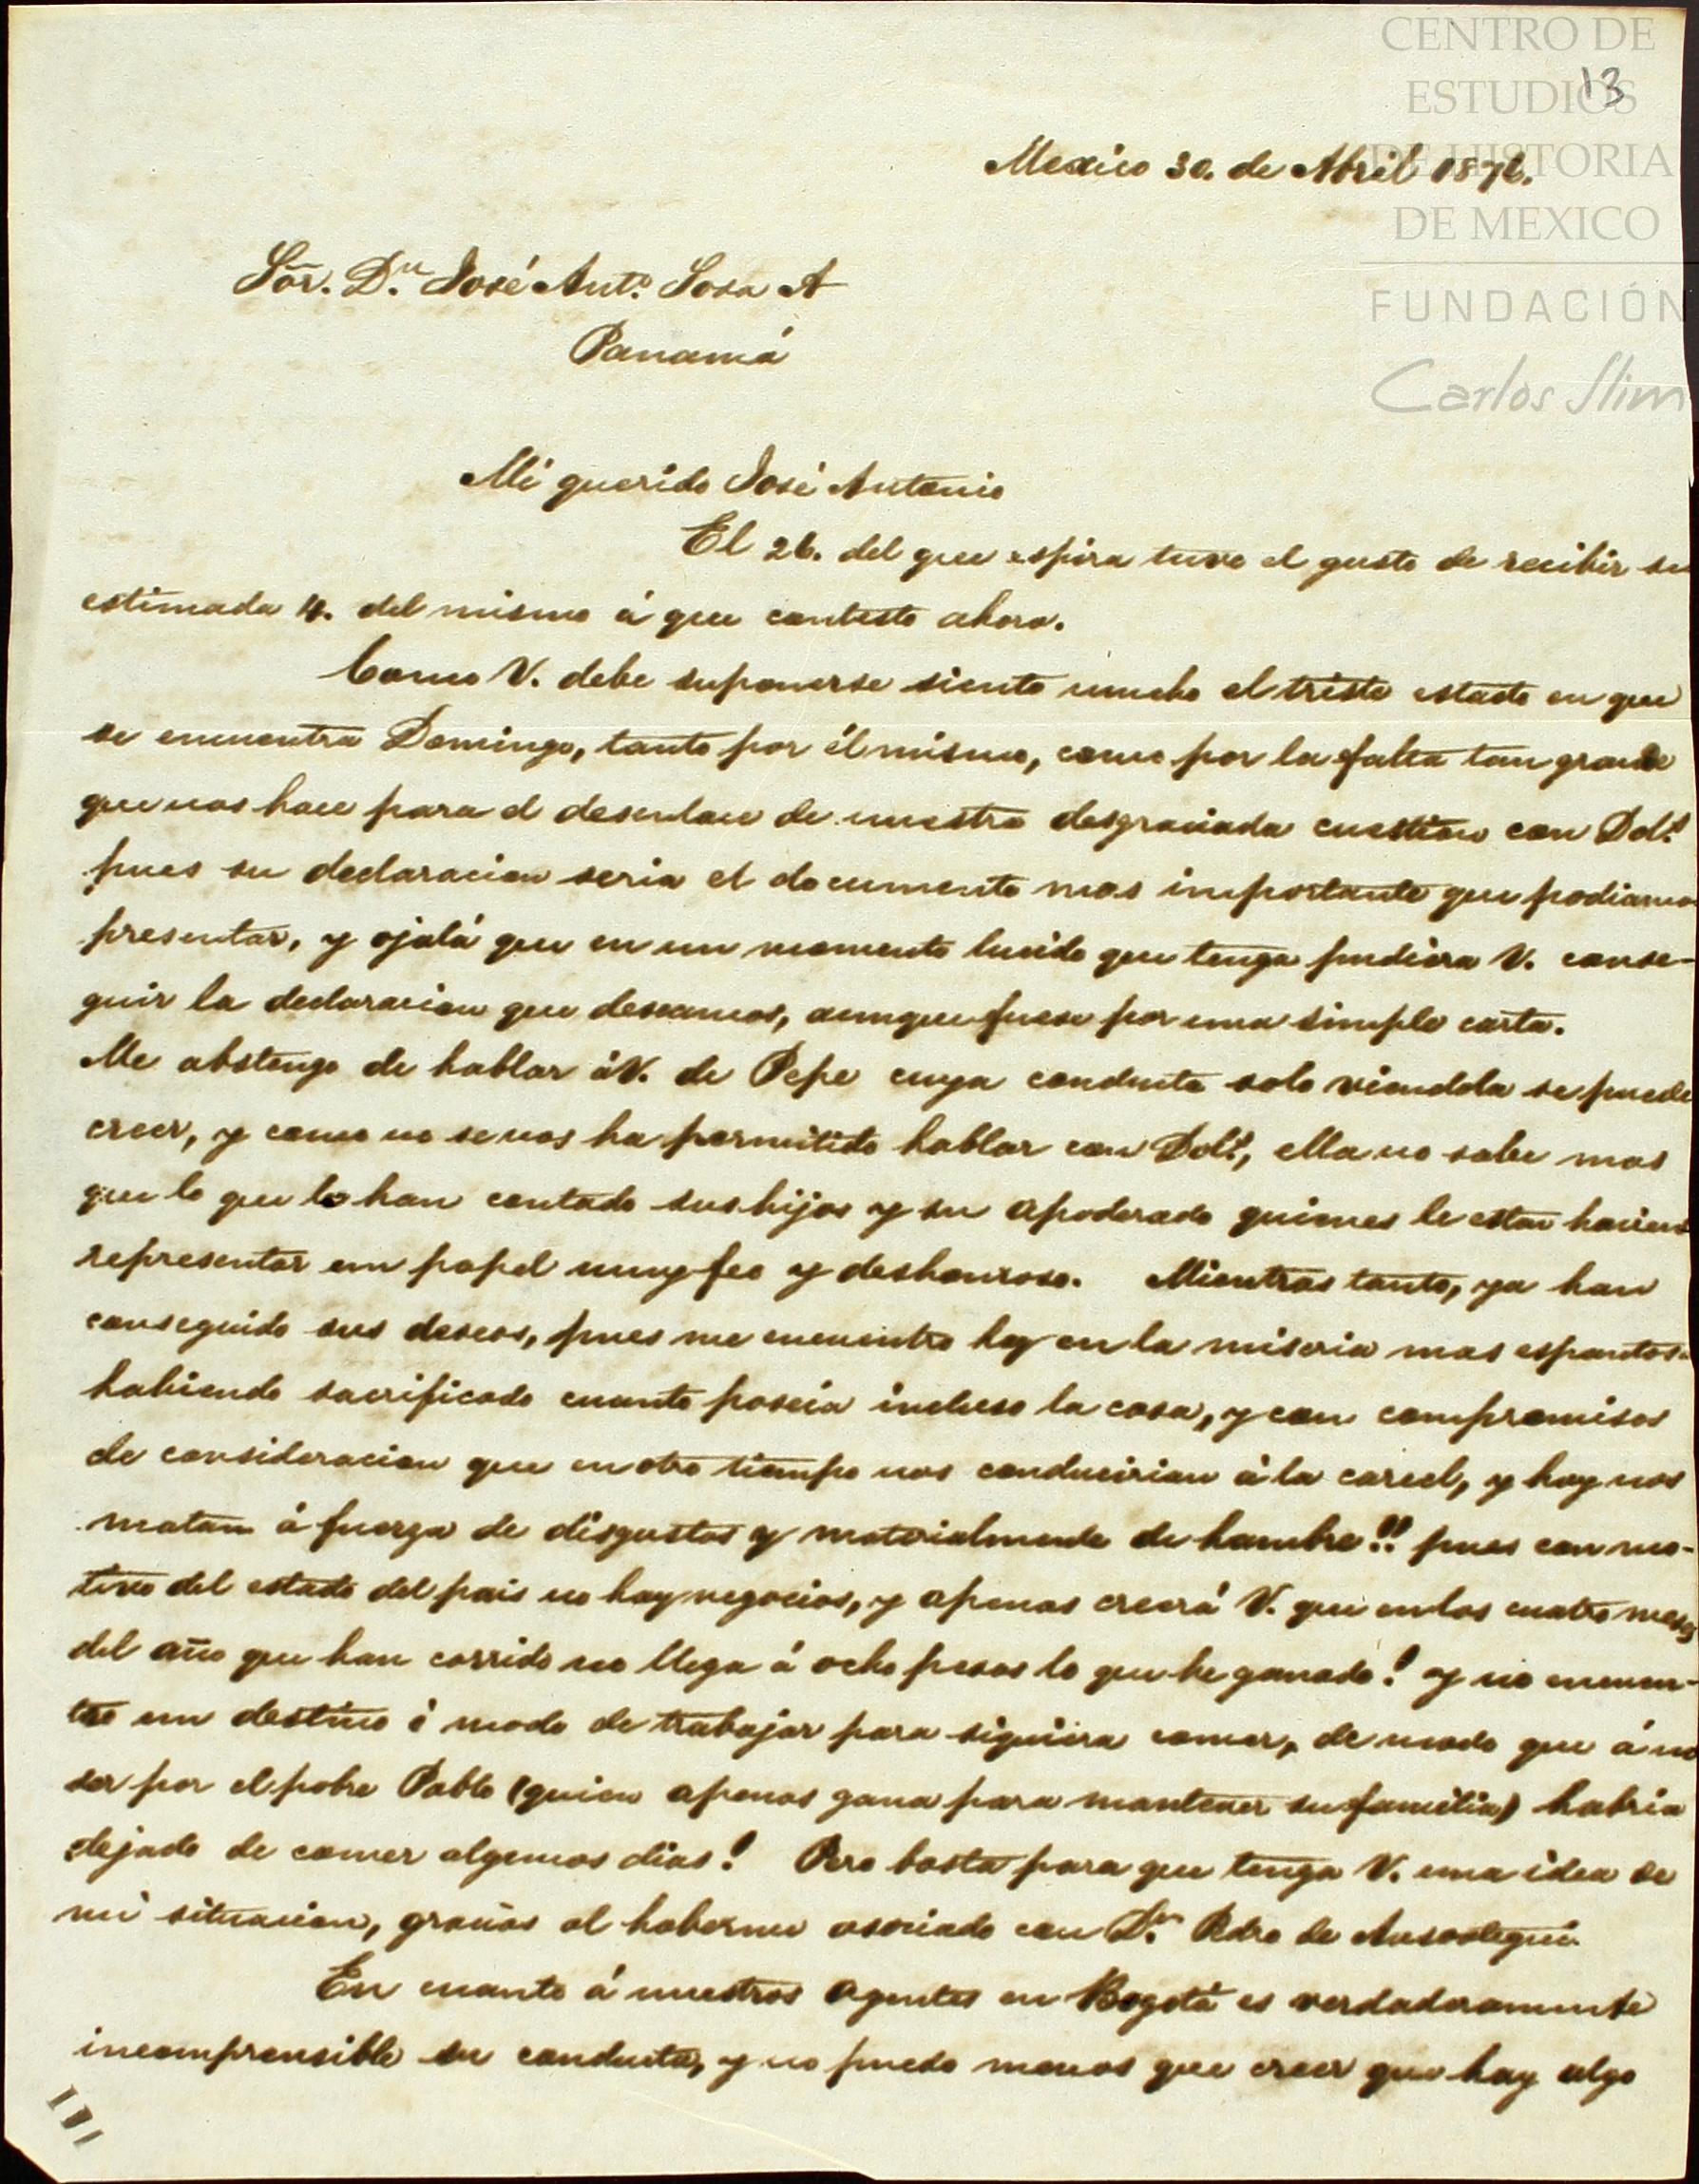 CENTRO DE
ESTUDIOS
DE HISTORIA
DE MEXICO
FUNDACIÓN
Carlos Slim
13
Mexico 30. de Abril 1876.
Sõr. D.n José Ant.o Sosa A
Panamá
Mi querido José Antonio
El 26. del que espira tuve el gusto de recibir su
estimada 4. del mismo á que contesto ahora.
Como V. debe suponerse siento mucho el triste estado en que
se encuentra Domingo, tanto por él mismo, como por la falta tan grande
que nos hace para el desenlace de nuestra desgraciada cuestion con Dol.s
pues su declaracion seria el documento mas importante que podiamos
presentar, y ojalá que en un momento lucido que tenga pudiera V. conse-
guir la declaracion que deseamos, aunque fuese por una simple carta.
Me abstengo de hablar á V. de Pepe cuya conducta solo viendola se puede
creer, y como no se nos ha permitido hablar con Dol.s, ella no sabe mas
que lo que le han contado sus hijos y su apoderado quienes le estan haciend
representar un papel muy feo y deshonroso. Mientras tanto, ya han
conseguido sus deseos, pues me encuentro hoy en la miseria mas espantosa
habiendo sacrificado cuanto poseía incluso la casa, y con compromisos
de consideracion que en otro tiempo nos conducirian á la carcel, y hoy nos
matan á fuerza de disgustos y materialmente de hambre!! pues con mo-
tivo del estado del pais no hay negocios, y apenas creerá V. que en los cuatro meses
del año que han corrido no llega á ocho pesos lo que he ganado! y no encuen-
tro un destino ó modo de trabajar para siquiera comer, de modo que á no
ser por el pobre Pablo (quien apenas gana para mantener su familia) habria
dejado de comer algunos dias! Pero basta para que tenga V. una idea de
mi situacion, gracias al haberme asociado con D.n Pedro de Ansoategui.
En cuanto á nuestros agentes en Bogotá es verdaderamente
incomprensible su conducta, y no puedo menos que creer que hay algo